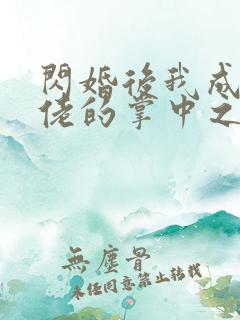 閃婚後我成
佬的掌中之
無塵骨
未經同意禁止轉載